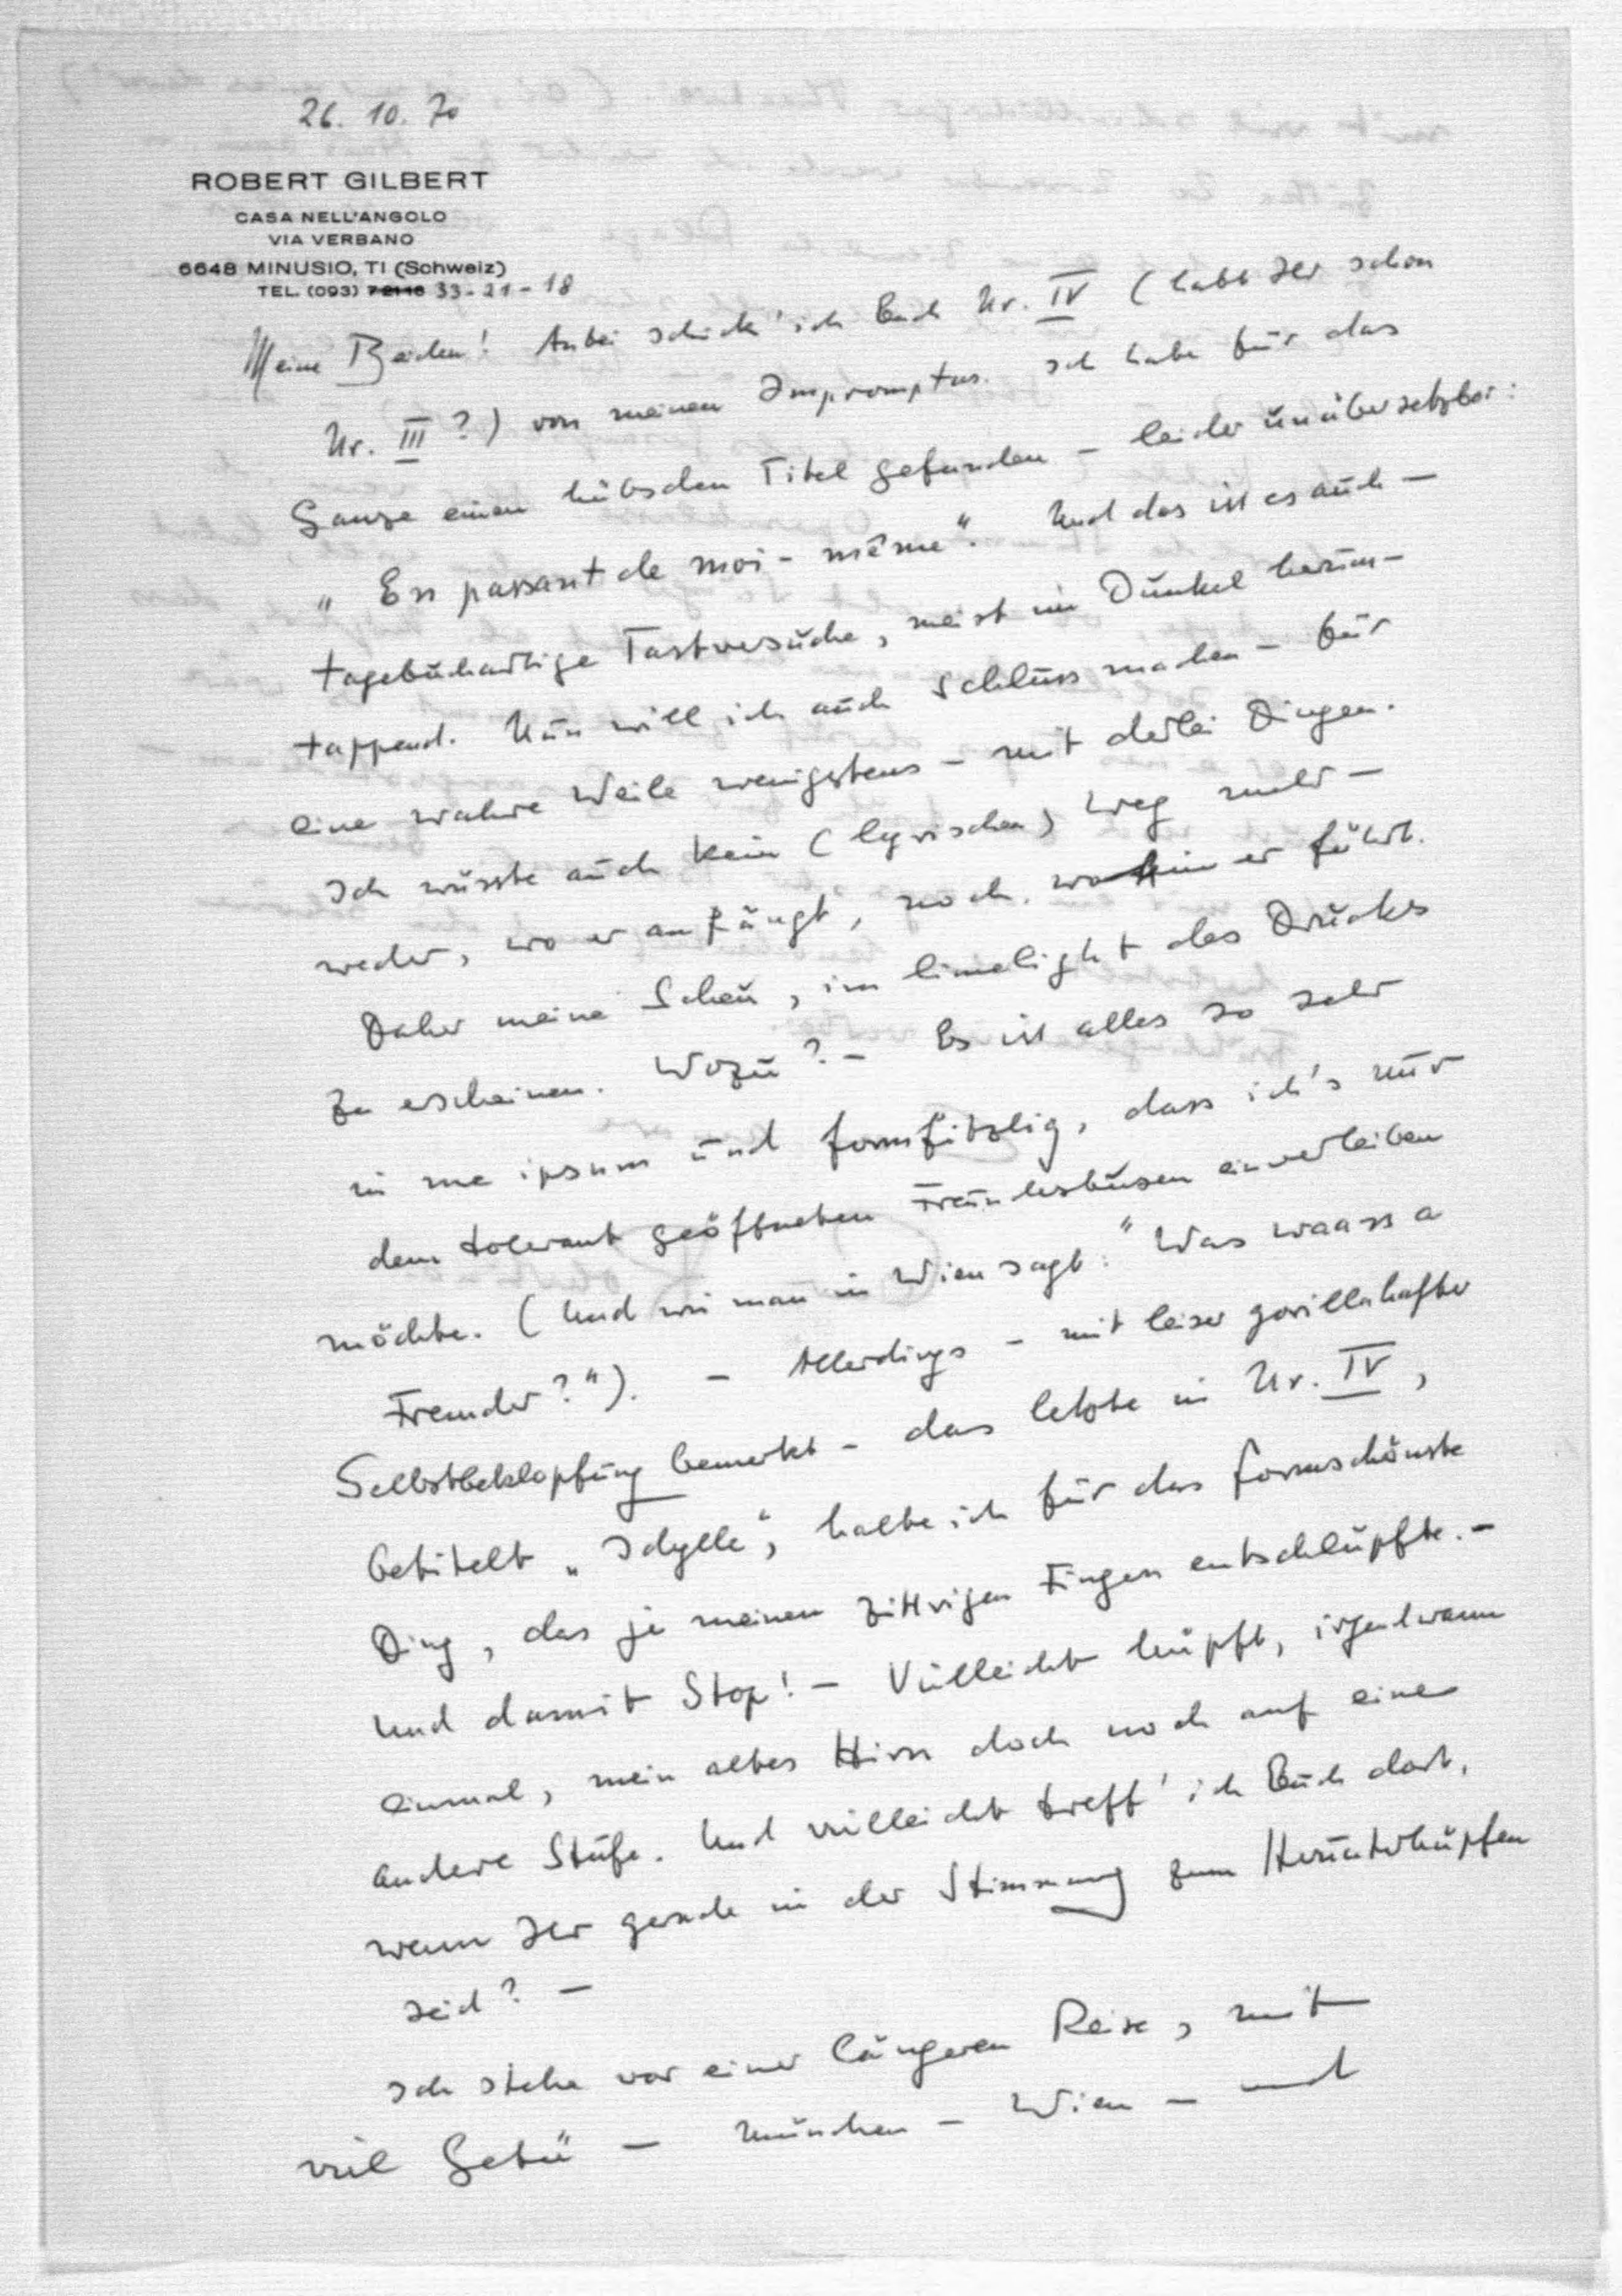 26. 10. 70
ROBERT GILBERT
CASA NELL'ANGOLO
VIA VERBANO
6648 MINUSIO, TI (Schweiz)
TEL. (093) 72116 33-21-18
Meine Beiden! Anbei schick' ich Euch Nr. IV (habt Ihr schon
Nr. III?) von meinen Impromptus. Ich habe für das
Ganze einen hübschen Titel gefunden – leider unübersetzbar:
„En passant de moi-même“. Und das ist es auch –
tagebuchartige Tastversuche, meist im Dunkel herum-
tappend. Nun will ich auch Schluss machen – für
eine wahre Weile wenigstens – mit derlei Dingen.
Ich wüsste auch kein (lyrischen) Weg mehr –
weder, wo er anfängt, noch, wohin er führt.
Daher meine Scheu, im limelight des Drucks
zu erscheinen. Wozu? – Es ist alles so sehr
in me ipsum und formfitzlig, dass ich's nur
dem tolerant geöffneten Freundesbusen einverleiben
möchte. (Und wie man in Wien sagt: "Was waass a
Fremder?"). – Allerdings – mit leiser gorillahafter
Selbstbeklopfung bemerkt – das letzte in Nr. IV,
betitelt „Idylle“, halte ich für das formschönste
Ding, das je meinen zittrigen Fingern entschlüpfte. –
Und damit Stop! – Vielleicht hüpft, irgendwann
einmal, mein altes Hirn doch noch auf eine
andere Stufe. Und vielleicht treff' ich Euch dort,
wenn Ihr gerade in der Stimmung zum Herunterhüpfen
seid? –
Ich stehe vor einer längeren Reise, mit
viel Getü – München – Wien – und